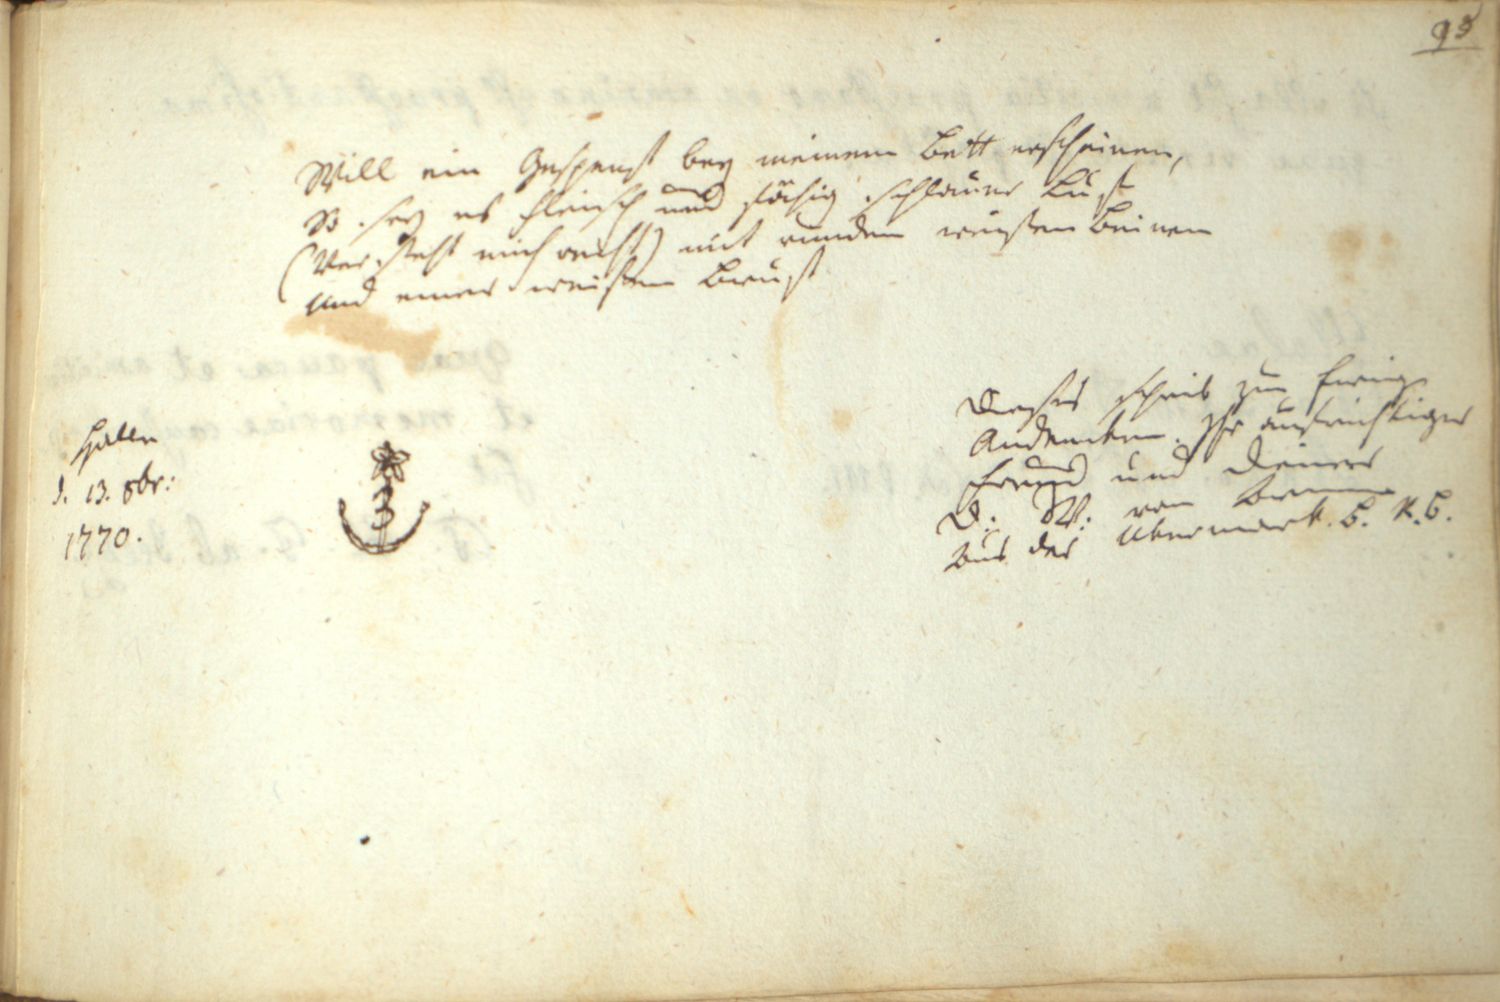 93
Will ein Gespenst bey meinem Bett erscheinen,
So sey es Fleisch und fähig schlauer Lust
(Versteht mich recht) mit runden weißen Beinen
und einer weißen Brust
Halle
d. 13. 8br:
1770.
Dieses schrieb zum Ewigen
Andencken Ihr aufrichtiger
Freund und Diener
D. W. von
aus der Ukermark. C. K. C.